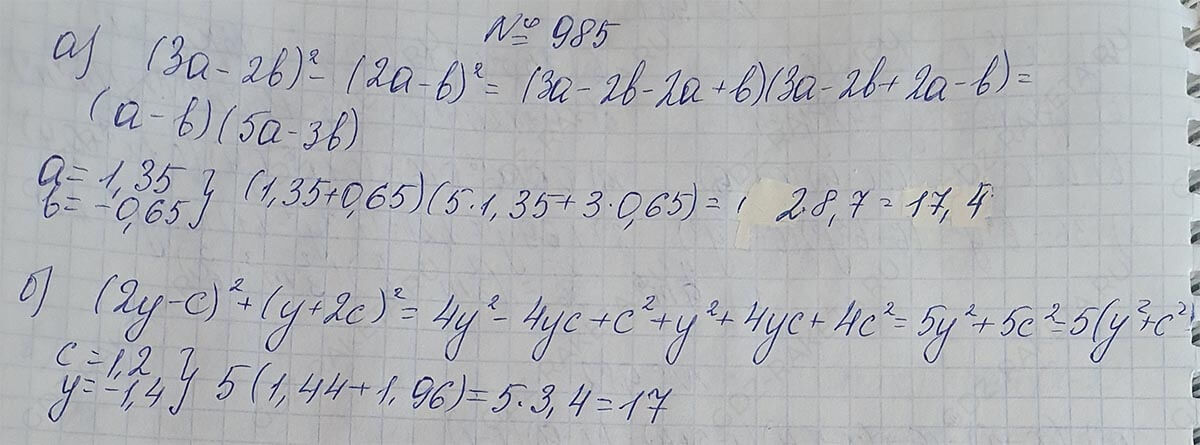 № 985
а) (3a - 2b)² - (2a - b)² = (3a - 2b - 2a + b)(3a - 2b + 2a - b) =
(a - b)(5a - 3b)
a = 1,35
b = -0,65 } (1,35 + 0,65)(5 · 1,35 + 3 · 0,65) = 2 · 8,7 = 17,4
б) (2y - c)² + (y + 2c)² = 4y² - 4yc + c² + y² + 4yc + 4c² = 5y² + 5c² = 5(y² + c²)
c = 1,2
y = -1,4 } 5(1,44 + 1,96) = 5 · 3,4 = 17